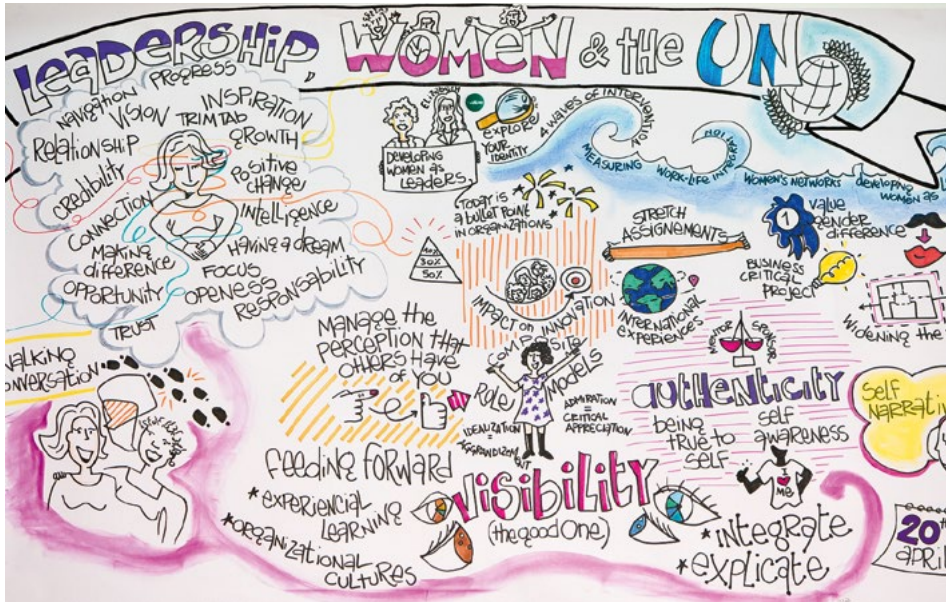 Leadership, Women & the UN
Navigation
Progress
Vision
Trimtab
Inspiration
Growth
Relationship
Credibility
Positive
Change
Connection
Intelligence
Making
difference
Having a dream
Focus
Opportunity
Openess
Responsability
Trust
Elizabeth
Developing
Women as
Leaders,
explore
your
identity
4 waves of intervention
Measuring
Work-life
Women's networks
developing
women as
Today is
a bullet point
in organizations
Stretch
Assignements
1
Value
gender
difference
20%
30%
50%
Impact on Innovation
International
experiences
Business
critical
project
Widening the
Manage the
perception that
others have
of you
Composite
Role Models
Idealization
=
Aggrandizement
Admiration
=
Critical
Appreciation
Mentor
Sponsor
Authenticity
being
true to
self
self
awareness
I
me
Self
Narrative
Walking
conversation
Feeding forward
*experiencial
learning
*organizational
cultures
Visibility
(the good one)
*integrate
*explicate
20th
April